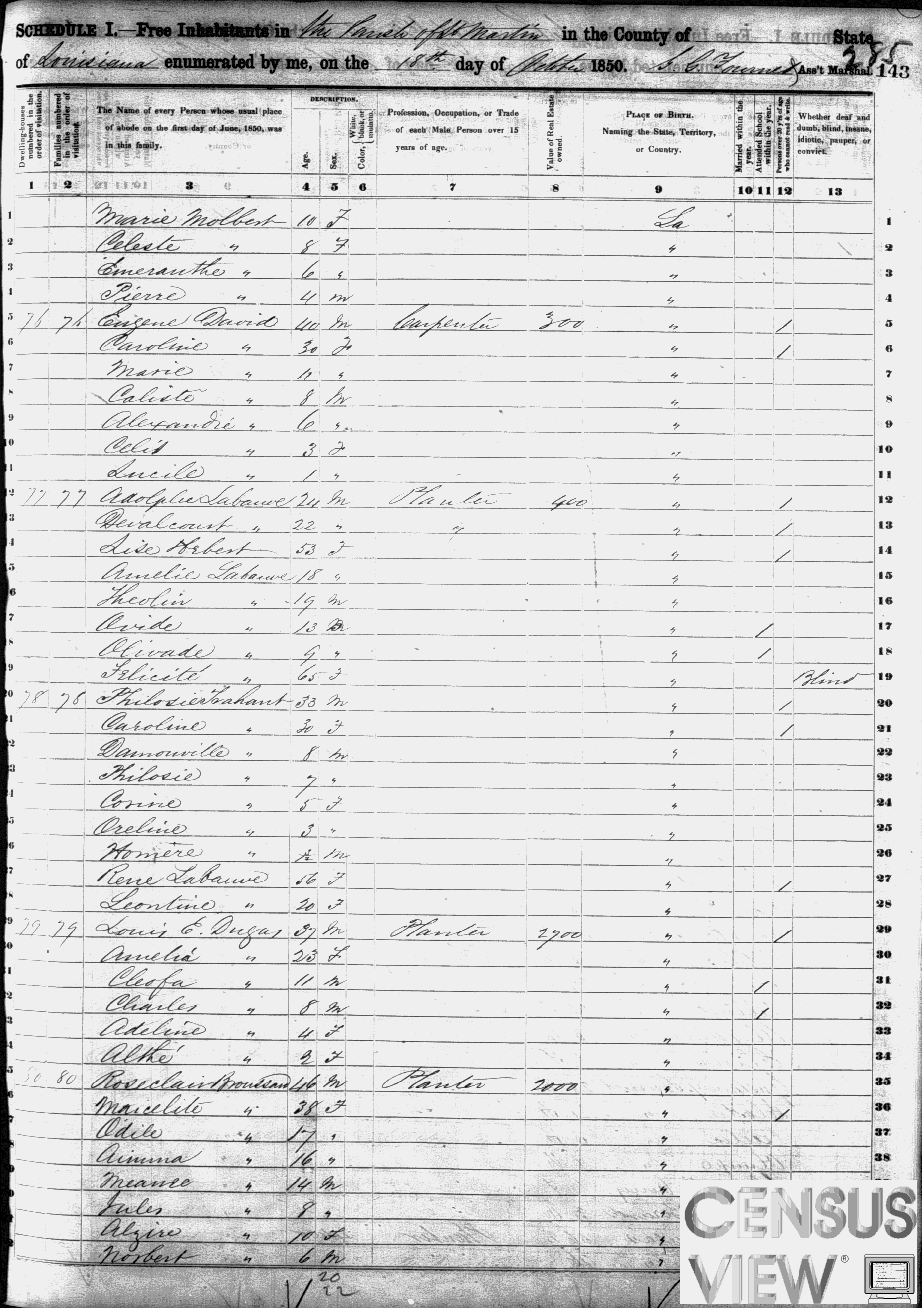 SCHEDULE I.—Free Inhabitants in the Parish of St Martin in the County of State
of Louisiana enumerated by me, on the 18th day of October 1850. Ass't Marshal. 285 143
Dwelling-houses numbered in the order of visitation.
Families numbered in the order of visitation.
The Name of every Person whose usual place of abode on the first day of June, 1850, was in this family.
DESCRIPTION.
Age.
Sex.
Color, White, black, or mulatto.
Profession, Occupation, or Trade of each Male Person over 15 years of age.
Value of Real Estate owned.
PLACE OF BIRTH. Naming the State, Territory, or Country.
Married within the year.
Attended School within the year.
Persons over 20 Y'rs of age who cannot read & write.
Whether deaf and dumb, blind, insane, idiotic, pauper, or convict.
1 2 3 4 5 6 7 8 9 10 11 12 13
1 Marie Molbert 10 F La 1
2 Celeste " 8 F " 2
3 Emeranthe " 6 " " 3
4 Pierre " 4 m " 4
5 76 76 Eugene David 40 M Carpenter 300 " / 5
6 Caroline " 30 F " / 6
7 Marie " 11 " " 7
8 Caliste " 8 M " 8
9 Alexandre " 6 " " 9
10 " 3 F " 10
11 Lucile " 1 " " 11
12 77 77 Adolphe Labauve 24 M Planter 400 " / 12
13 Devalcourt " 22 " " " / 13
14 Lise Hebert 53 F " / 14
15 Amelie Labauve 18 " " 15
16 Theolin " 19 M " 16
17 Ovide " 13 M " / 17
18 Olivade " 9 " " / 18
19 Felicité " 65 F " Blind 19
20 78 78 Philosie Trahant 33 M " / 20
21 Caroline " 30 F " / 21
22 Damonville " 8 m " 22
23 Philosie " 7 " " 23
24 Corine " 5 F " 24
25 Oreline " 3 " " 25
26 Homère " M " 26
27 Rene Labauve 56 F " / 27
28 Leontine " 20 F " 28
29 79 79 Louis E. Dugas 37 M Planter 2700 " / 29
30 Amelia " 23 F " 30
31 Cleofa " 11 m " / 31
32 Charles " 8 M " / 32
33 Adeline " 4 F " 33
34 Althé " 2 F " 34
35 80 80 Roseclair Broussard 46 M Planter 2000 " 35
Marcelite " 38 F " / 36
Odile " 17 " " 37
Aimma " 16 " " 38
" 14 M "
Jules " 8 " "
Alzire " 10 F "
Norbert " 6 M "
20
22
CENSUS
VIEW®